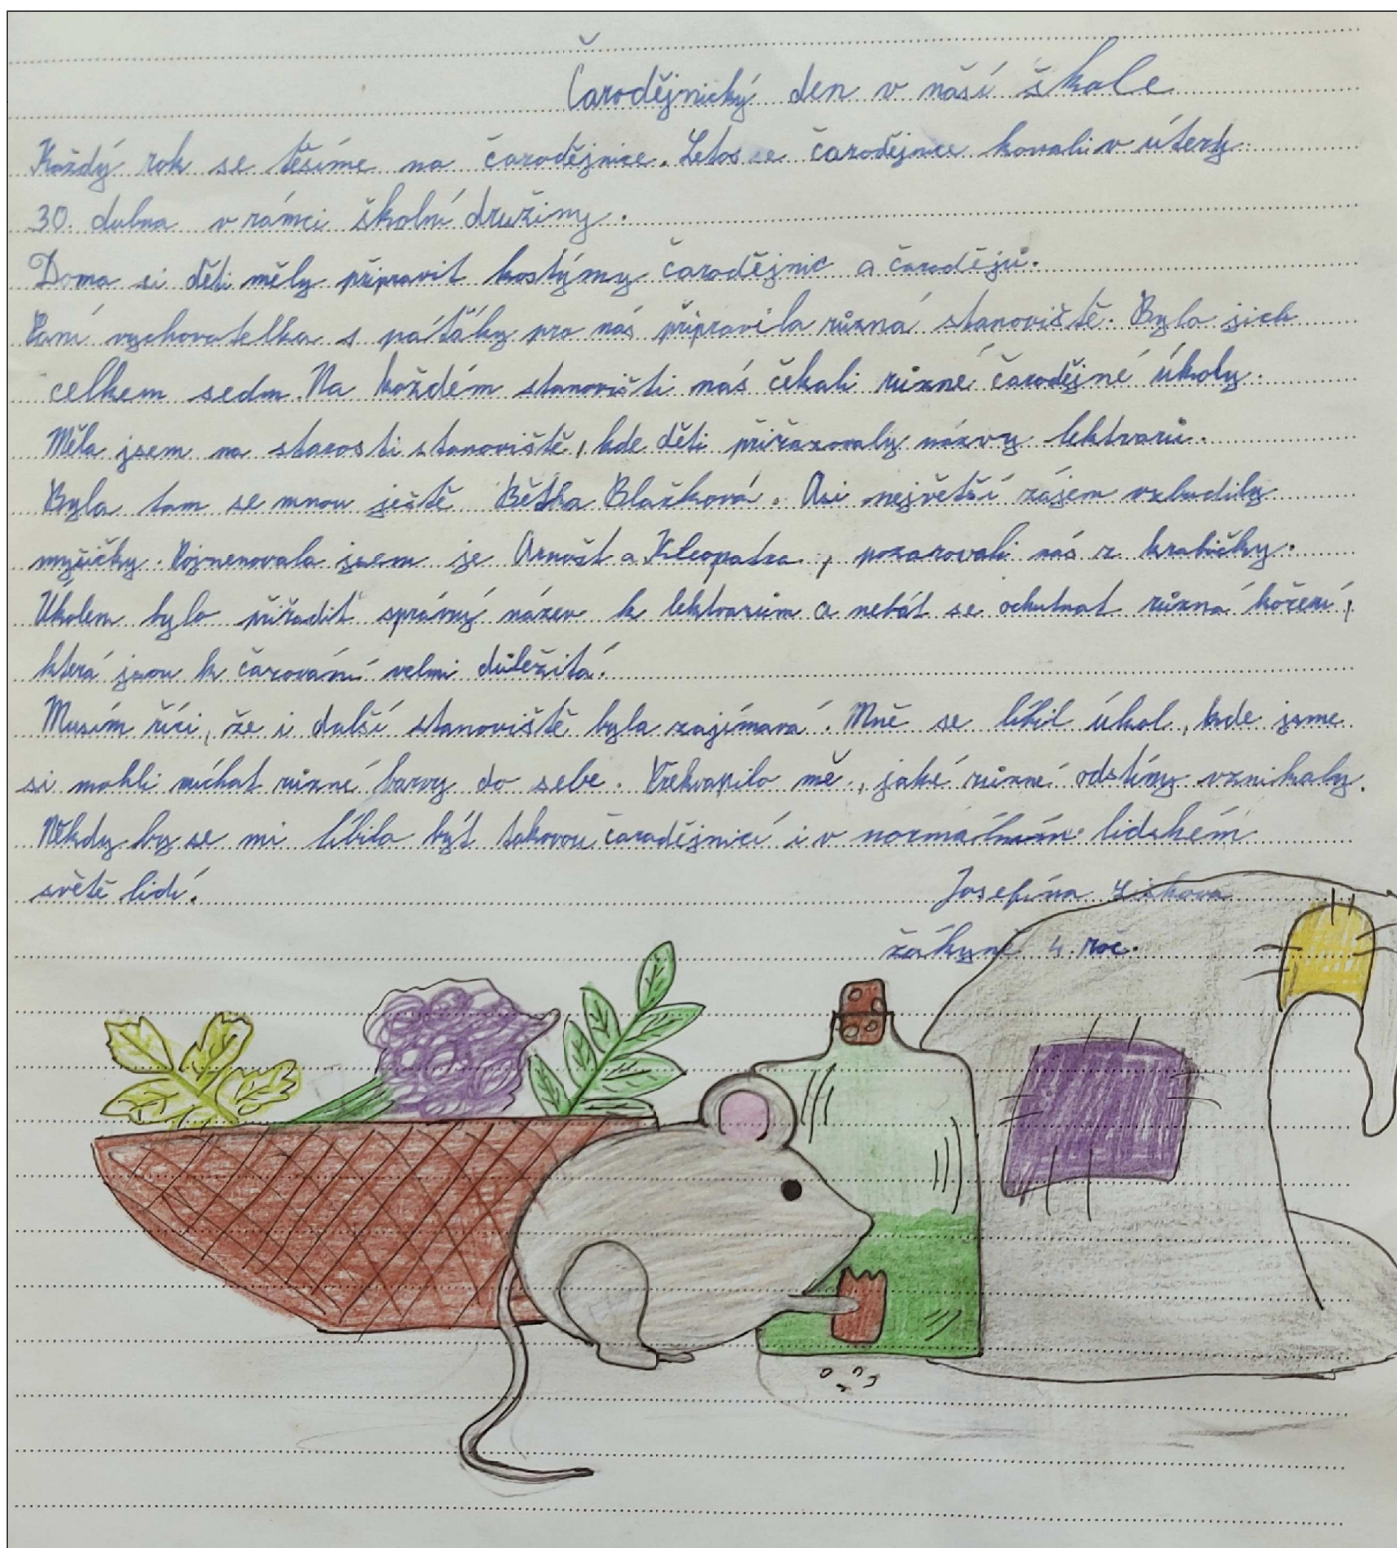 Čarodějnický den v naší škole
Každý rok se těšíme na čarodějnice. Letos se čarodějnice konali v úterý
30. dubna v rámci školní družiny.
Doma si děti měly připravit kostýmy čarodějnic a čarodějů.
Paní vychovatelka s páťáky pro nás připravila různá stanoviště. Bylo jich
celkem sedm. Na každém stanovišti nás čekali různé čarodějné úkoly.
Měla jsem na starosti stanoviště, kde děti přiřazovaly názvy lektvarů.
Byla tam se mnou ještě Bětka Blažková. Asi největší zájem vzbudily
myšičky. Pojmenovala jsem je Arnošt a Kleopatra, pozorovali nás z krabičky.
Úkolem bylo přiřadit správný název k lektvarům a nebát se ochutnat různá koření,
která jsou k čarování velmi důležitá.
Musím říci, že i další stanoviště byla zajímavá. Mně se líbil úkol, kde jsme
si mohli míchat různé barvy do sebe. Překvapilo mě, jaké různé odstíny vznikaly.
Někdy by se mi líbilo být takovou čarodějnicí i v lidském
světě lidí.
Josefína
žákyně 4. roč.